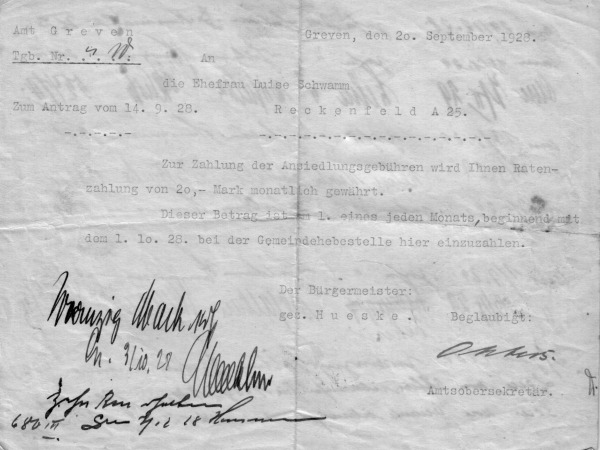 Amt Greven
Greven, den 20. September 1928.
Tgb. Nr.
An
die Ehefrau Luise Schwamm
Zum Antrag vom 14. 9. 28.
Reckenfeld A 25.
-.-.-.-.-
-.-.-.-.-.-.-.-.-.-.-.-.-.-.-
Zur Zahlung der Ansiedlungsgebühren wird Ihnen Raten-
zahlung von 20,- Mark monatlich gewährt.
Dieser Betrag ist am 1. eines jeden Monats, beginnend mit
dem 1. 10. 28. bei der Gemeindehebestelle hier einzuzahlen.
Der Bürgermeister:
gez. Hueske. Beglaubigt:
Amtsobersekretär.
Zwanzig Mark
Gn. 3/10. 28
Zehn Rm erhalten
680 III